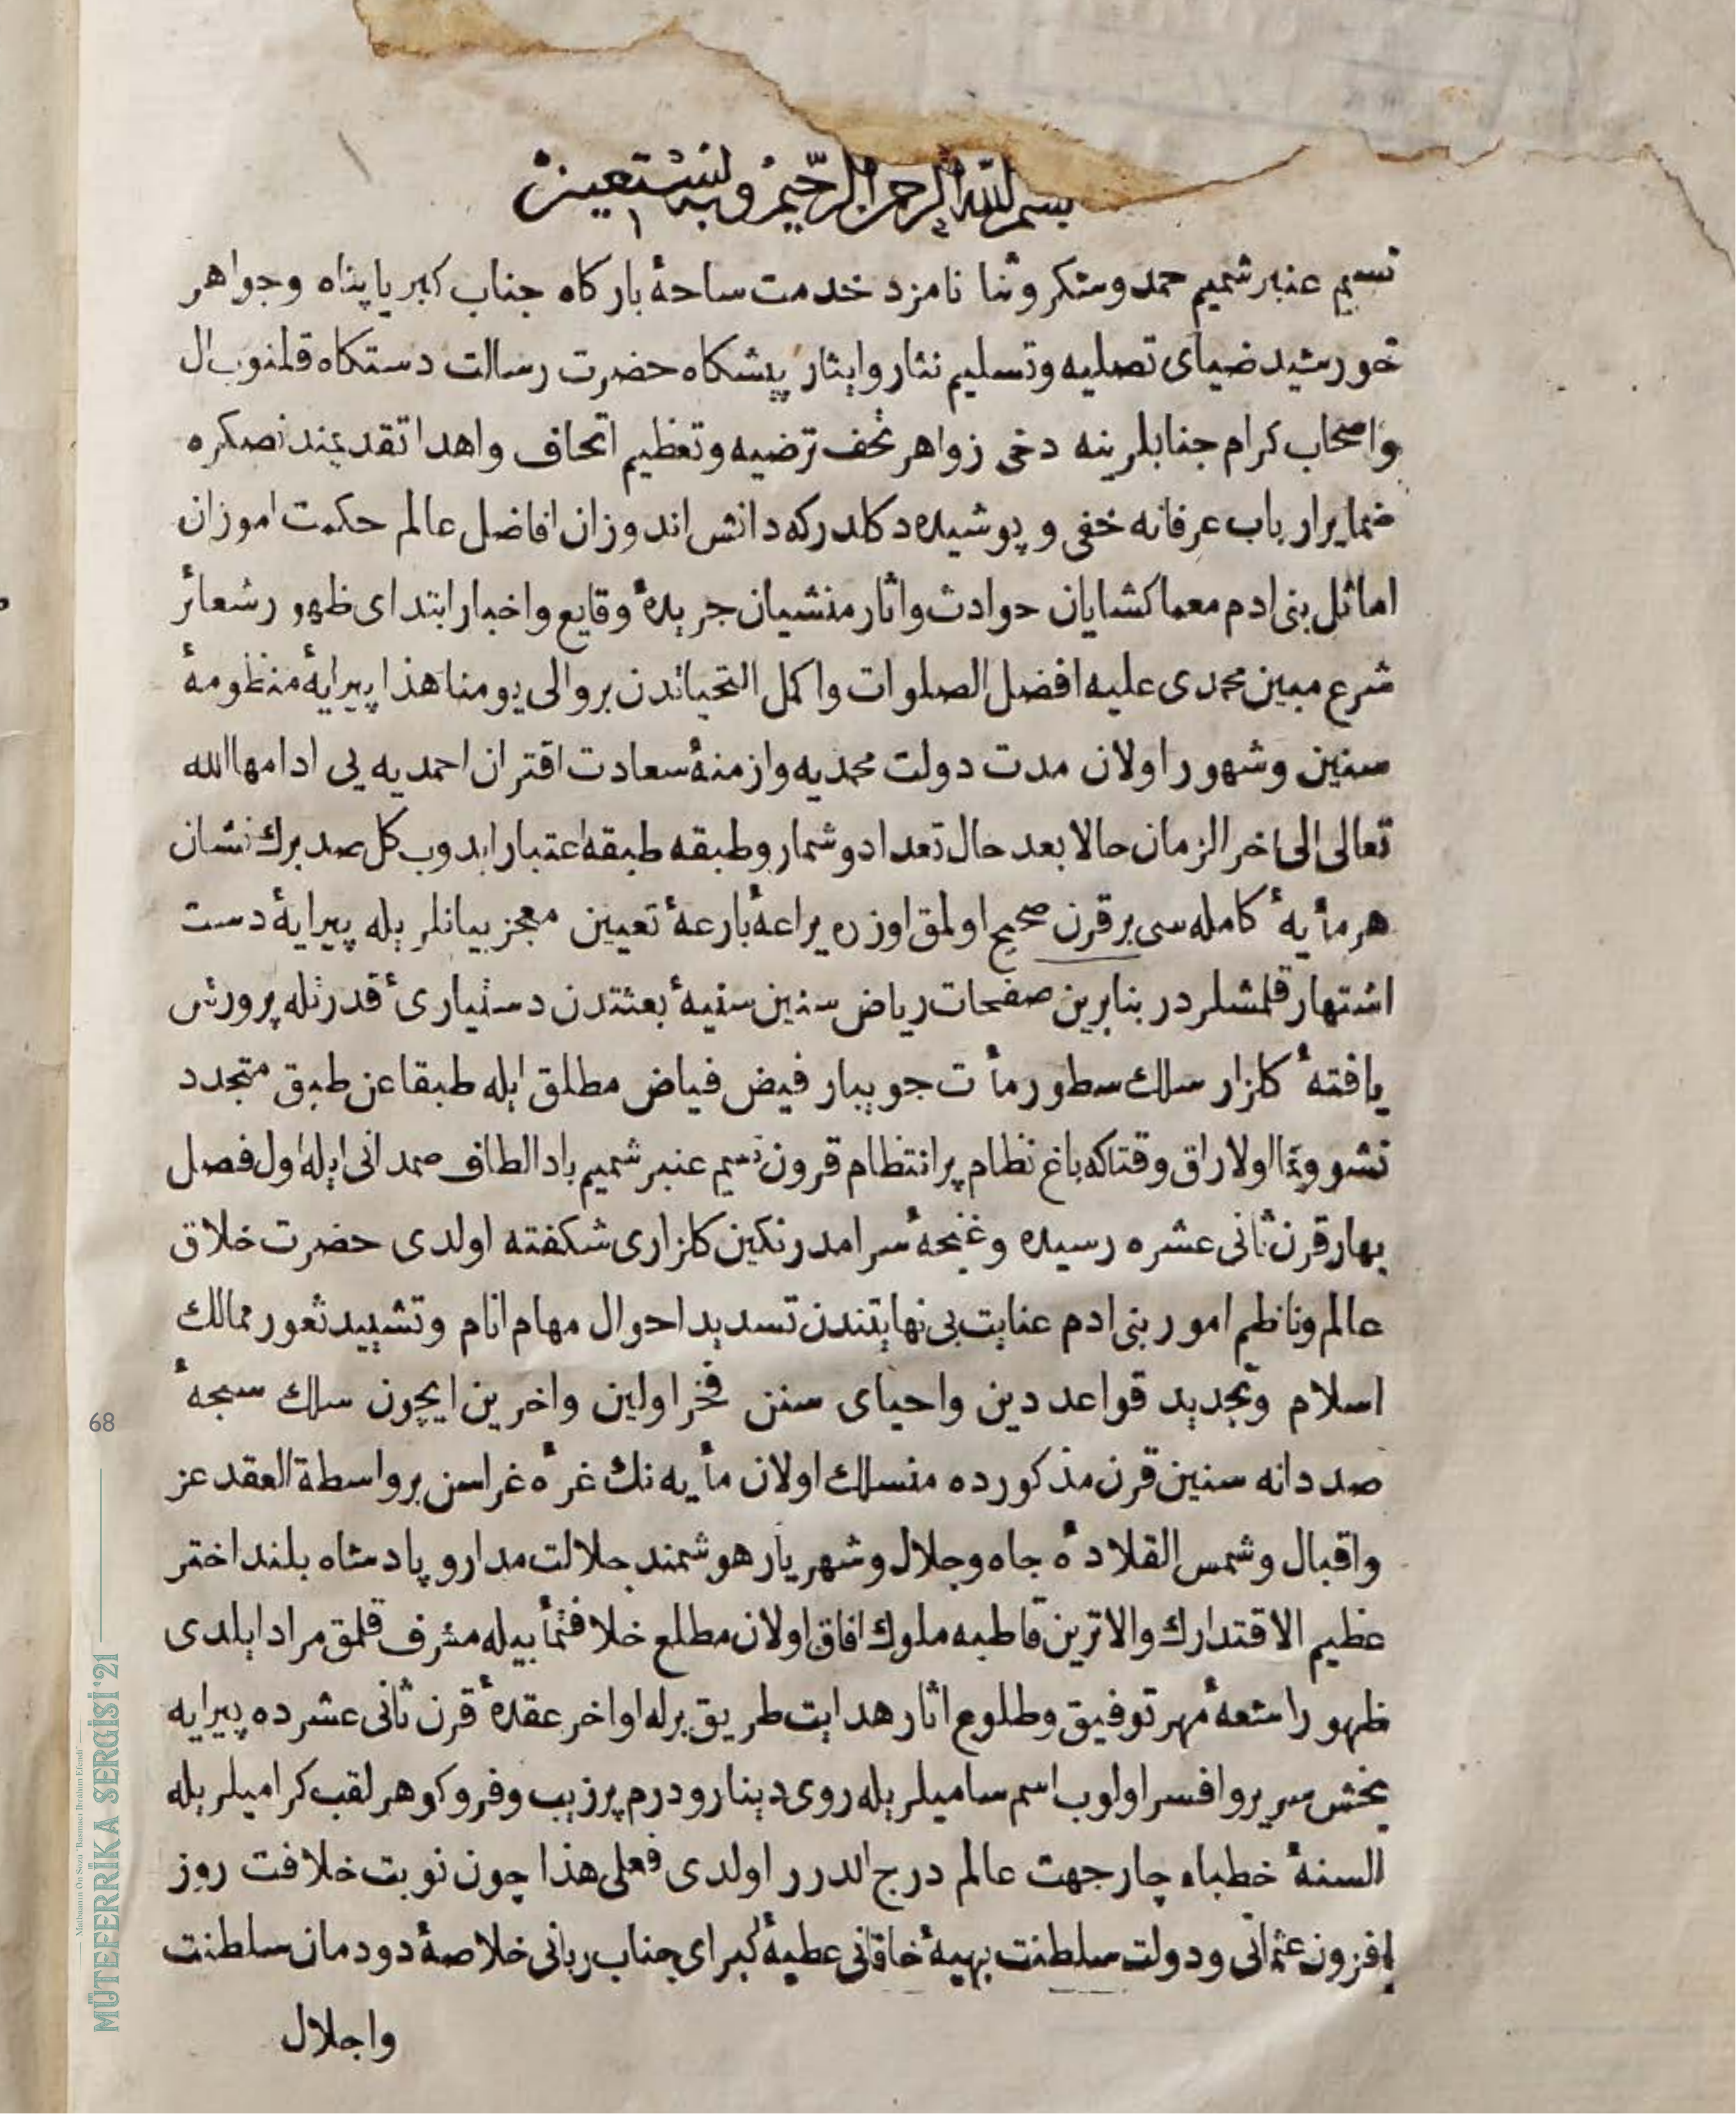 بسم الله الرحمن الرحیم وبه نستعین
نسیم عنبر شمیم حمد وشکر وثنا نامزد خدمت ساحهٔ بارکاه جناب کبریا پناه وجواهر
خورشید ضیای تصلیه وتسلیم نثار وایثار پیشکاه حضرت رسالت دستکاه قلنوب ال
واصحاب کرام جنابلرینه دخی زواهر تحف ترضیه وتعظیم اتحاف واهدا تقدیمندنصکره
ضمایر ارباب عرفانه خفی و پوشیده دکلدرکه دانش اندوزان افاضل عالم حکمت اموزان
اماثل بنی ادم معما کشایان حوادث واثار منشیان جریدهٔ وقایع واخبار ابتدای ظهور شعائر
شرع مبین محمدی علیه افضل الصلوات واکمل التحیاتدن برو الی یومنا هذا پیرایهٔ منظومهٔ
سنین وشهور اولان مدت دولت محمدیه وازمنهٔ سعادت اقتران احمدیه یی ادامها الله
تعالی الی اخر الزمان حالا بعد حال تعداد وشمار وطبقه طبقه اعتبار ایدوب کل صد برك نشان
هر مأیهٔ کامله سی بر قرن صحیح اولمق اوزره یراعهٔ بارعهٔ تعیین معجز بیانلریله پیرایهٔ دست
اشتهار قلمشلردر بنابرین صفحات ریاض سنین سنیهٔ بعثتدن دستیاریٔ قدرتله پرورش
یافتهٔ کلزار سلك سطور مأت جویبار فیض فیاض مطلق ایله طبقا عن طبق متجدد
نشو ونما اولاراق وقتاکه باغ نظام پر انتظام قرون نسیم عنبر شمیم باد الطاف صمدانی ایله اول فصل
بهار قرن ثانی عشره رسیده وغنچهٔ سرامد رنکین کلزاری شکفته اولدی حضرت خلاق
عالم وناظم امور بنی ادم عنایت بی نهایتندن تسدید احوال مهام انام وتشیید ثغور ممالك
اسلام وتجدید قواعد دین واحیای سنن فخر اولین واخرین ایچون سلك سبحهٔ
صد دانه سنین قرن مذکورده منسلك اولان مأیه نك غرهٔ غراسن بر واسطة العقد عز
واقبال وشمس القلادهٔ جاه وجلال وشهریار هوشمند جلالت مدار و پادشاه بلند اختر
عظیم الاقتدارك والاترین قاطبه ملوك افاق اولان مطلع خلافتمأبیله مشرف قلمق مراد ایلدی
ظهور اشعهٔ مهر توفیق وطلوع اثار هدایت طریق برله اواخر عقدهٔ قرن ثانی عشرده پیرایه
بخش سریر وافسر اولوب اسم سامیلریله روی دینار ودرم پر زیب وفر وکوهر لقب کرامیلریله
السنهٔ خطباء چار جهت عالم درج الدرر اولدی فعلی هذا چون نوبت خلافت روز
افزون عثمانی ودولت سلطنت بهیهٔ خاقانی عطیهٔ کبرای جناب ربانی خلاصهٔ دودمان سلطنت
واجلال
68
Matbaanın Ön Sözü "Basmacı İbrahim Efendi"
MÜTEFERRİKA SERGİSİ '21